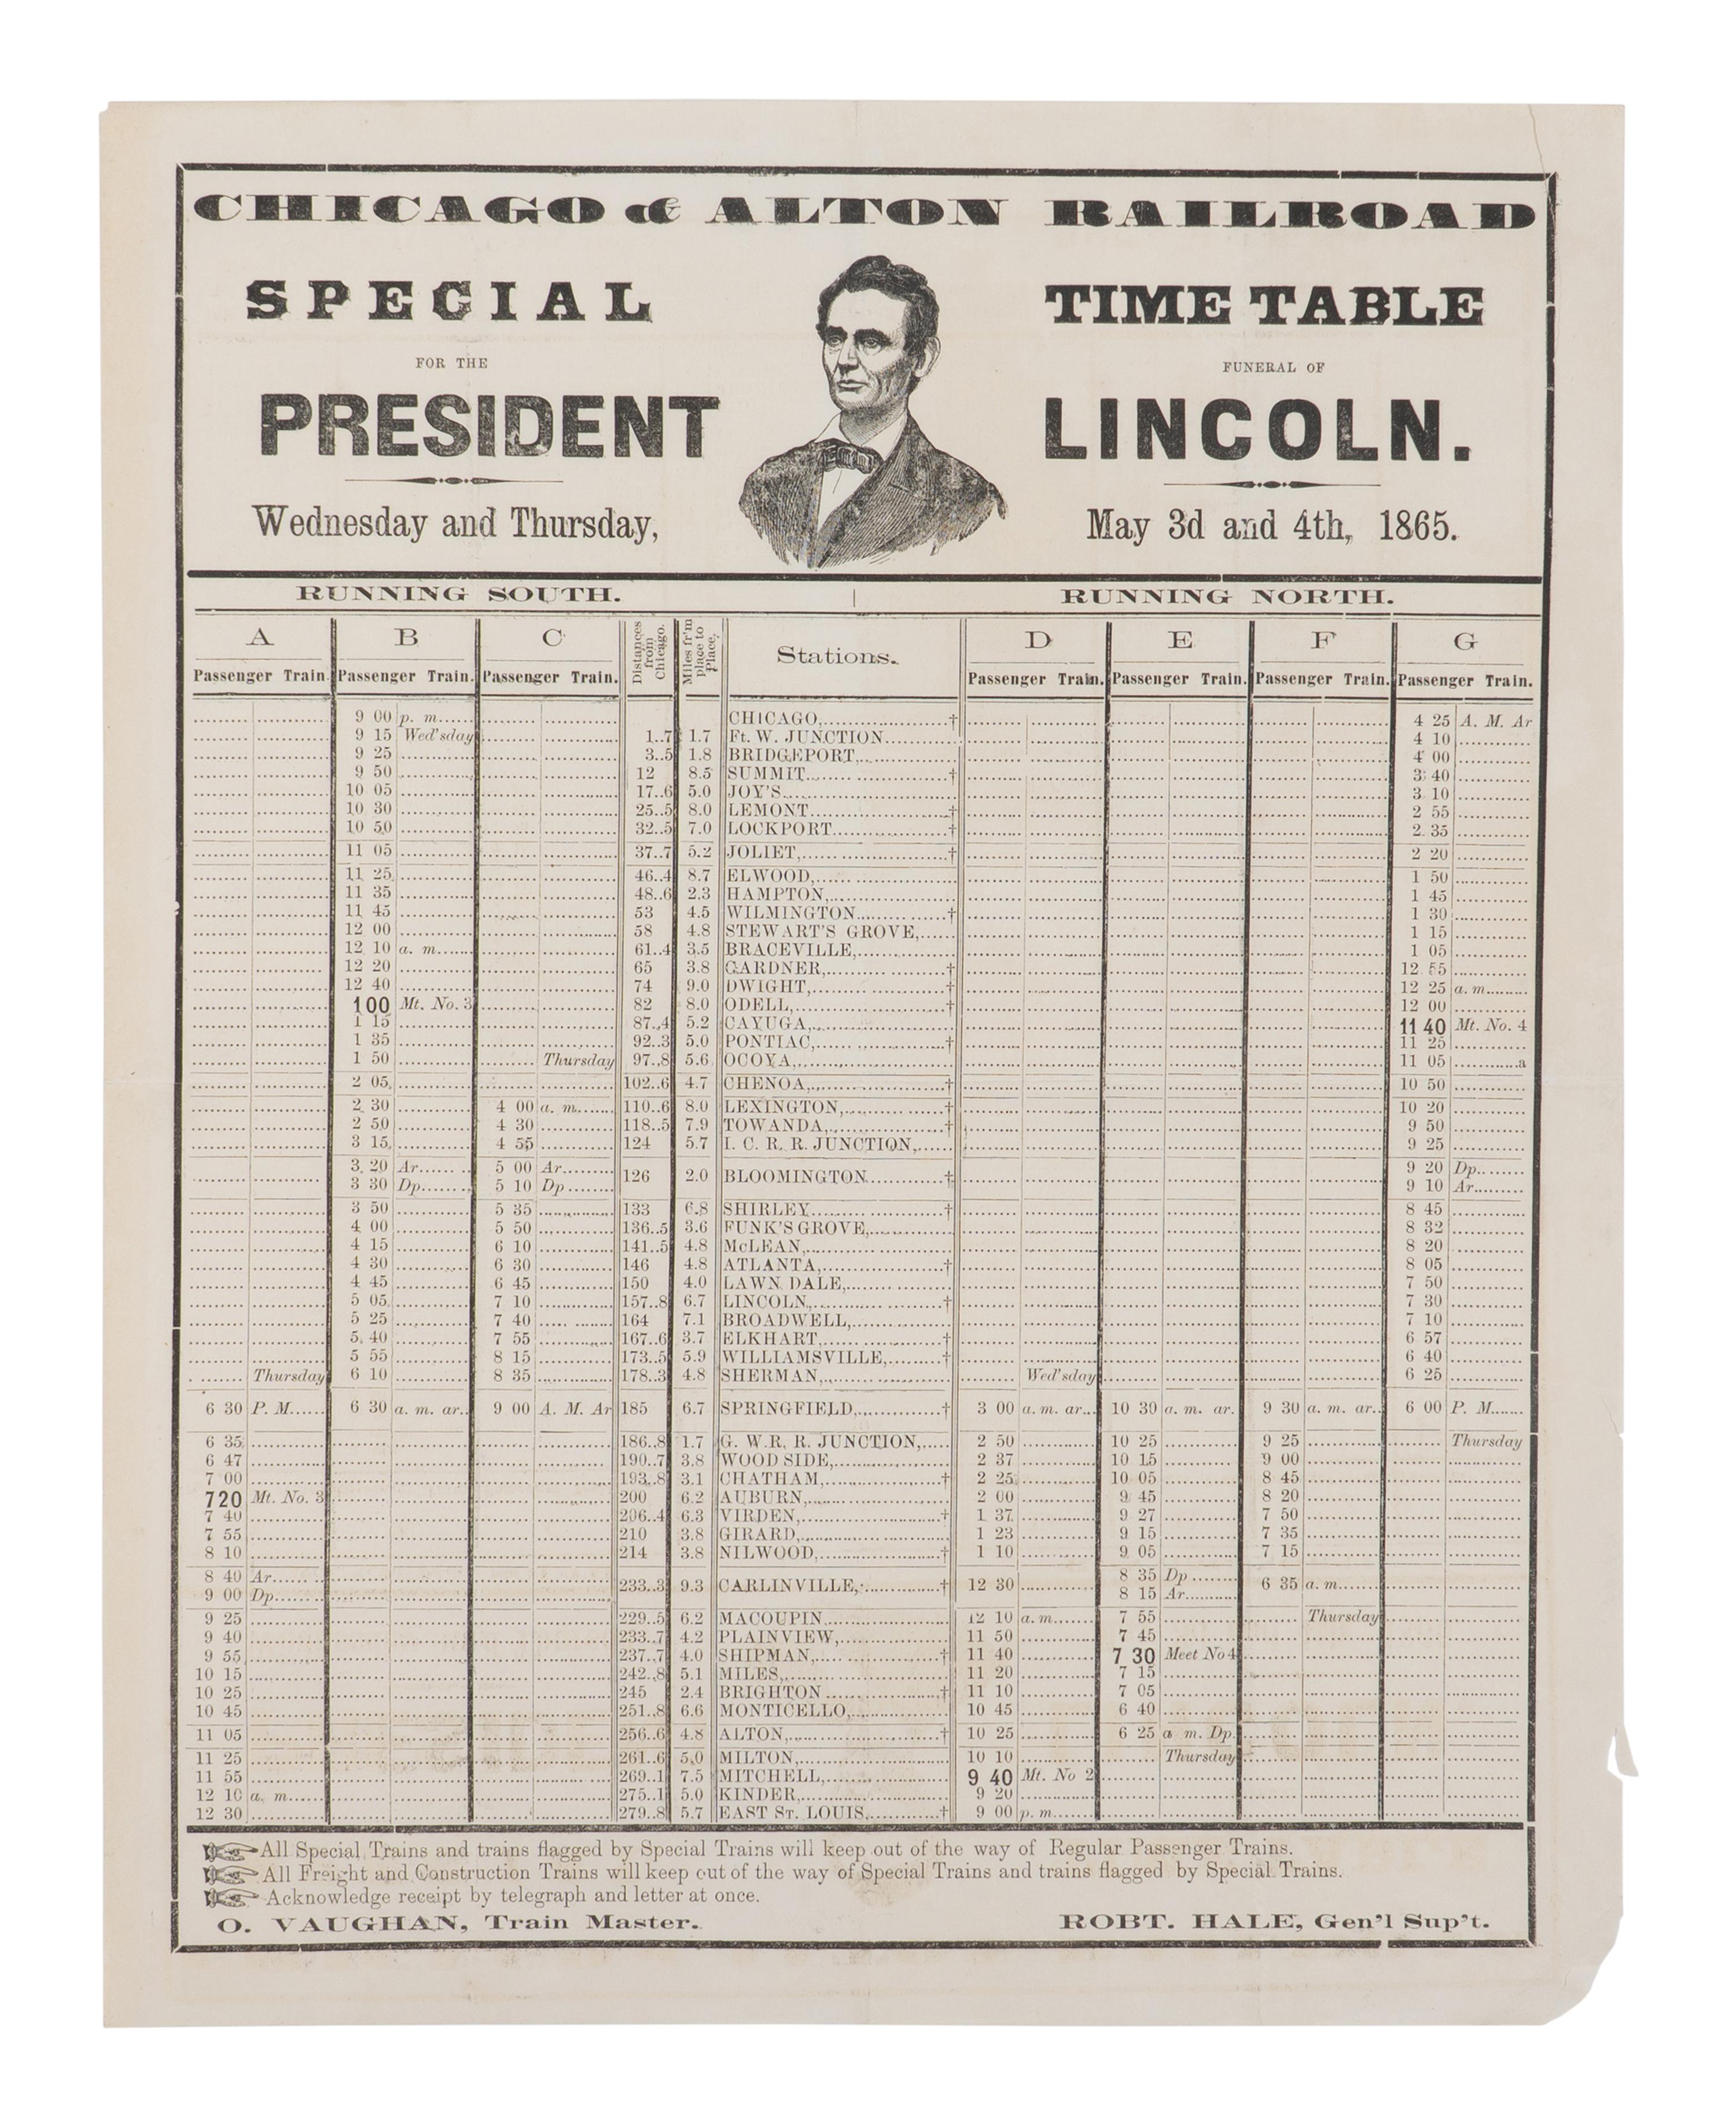 CHICAGO & ALTON RAILROAD
SPECIAL TIME TABLE
FOR THE FUNERAL OF
PRESIDENT LINCOLN.
Wednesday and Thursday, May 3d and 4th, 1865.
RUNNING SOUTH. RUNNING NORTH.
A B C Distances from Chicago. Miles fr'm place to Place. Stations. D E F G
Passenger Train. Passenger Train. Passenger Train. Passenger Train. Passenger Train. Passenger Train. Passenger Train.
9 00 p. m. CHICAGO, † 4 25 A. M. Ar
9 15 Wed'sday 1..7 1.7 Ft. W. JUNCTION 4 10
9 25 3..5 1.8 BRIDGEPORT, 4 00
9 50 12 8.5 SUMMIT † 3 40
10 05 17..6 5.0 JOY'S 3 10
10 30 25..5 8.0 LEMONT † 2 55
10 50 32..5 7.0 LOCKPORT † 2 35
11 05 37..7 5.2 JOLIET, † 2 20
11 25 46..4 8.7 ELWOOD, 1 50
11 35 48..6 2.3 HAMPTON, 1 45
11 45 53 4.5 WILMINGTON † 1 30
12 00 58 4.8 STEWART'S GROVE, 1 15
12 10 a. m. 61..4 3.5 BRACEVILLE, 1 05
12 20 65 3.8 GARDNER, † 12 55
12 40 74 9.0 DWIGHT, † 12 25 a. m.
1 00 Mt. No. 3 82 8.0 ODELL, † 12 00
1 15 87..4 5.2 CAYUGA, 11 40 Mt. No. 4
1 35 92..3 5.0 PONTIAC, † 11 25
1 50 Thursday 97..8 5.6 OCOYA, 11 05 a
2 05 102..6 4.7 CHENOA, † 10 50
2 30 4 00 a. m. 110..6 8.0 LEXINGTON, † 10 20
2 50 4 30 118..5 7.9 TOWANDA, † 9 50
3 15 4 55 124 5.7 I. C. R. R. JUNCTION, 9 25
3 20 Ar 5 00 Ar 126 2.0 BLOOMINGTON † 9 20 Dp
3 30 Dp 5 10 Dp 9 10 Ar
3 50 5 35 133 6.8 SHIRLEY † 8 45
4 00 5 50 136..5 3.6 FUNK'S GROVE, 8 32
4 15 6 10 141..5 4.8 McLEAN, 8 20
4 30 6 30 146 4.8 ATLANTA, † 8 05
4 45 6 45 150 4.0 LAWN DALE, 7 50
5 05 7 10 157..8 6.7 LINCOLN, † 7 30
5 25 7 40 164 7.1 BROADWELL, 7 10
5 40 7 55 167..6 3.7 ELKHART, † 6 57
5 55 8 15 173..5 5.9 WILLIAMSVILLE, † 6 40
Thursday 6 10 8 35 178..3 4.8 SHERMAN, Wed'sday 6 25
6 30 P. M. 6 30 a. m. ar. 9 00 A. M. Ar 185 6.7 SPRINGFIELD, † 3 00 a. m. ar. 10 30 a. m. ar. 9 30 a. m. ar. 6 00 P. M.
6 35 186..8 1.7 G. W. R. R. JUNCTION, 2 50 10 25 9 25 Thursday
6 47 190..7 3.8 WOOD SIDE, 2 37 10 15 9 00
7 00 193..8 3.1 CHATHAM, † 2 25 10 05 8 45
7 20 Mt. No. 3 200 6.2 AUBURN, 2 00 9 45 8 20
7 40 206..4 6.3 VIRDEN, † 1 37 9 27 7 50
7 55 210 3.8 GIRARD, 1 23 9 15 7 35
8 10 214 3.8 NILWOOD, † 1 10 9 05 7 15
8 40 Ar 233..3 9.3 CARLINVILLE, † 12 30 8 35 Dp 6 35 a. m.
9 00 Dp 8 15 Ar
9 25 229..5 6.2 MACOUPIN 12 10 a. m. 7 55 Thursday
9 40 233..7 4.2 PLAINVIEW, 11 50 7 45
9 55 237..7 4.0 SHIPMAN, † 11 40 7 30 Meet No 4
10 15 242..8 5.1 MILES, 11 20 7 15
10 25 245 2.4 BRIGHTON † 11 10 7 05
10 45 251..8 6.6 MONTICELLO, 10 45 6 40
11 05 256..6 4.8 ALTON, † 10 25 6 25 a m. Dp.
11 25 261..6 5.0 MILTON, 10 10 Thursday
11 55 269..1 7.5 MITCHELL, 9 40 Mt. No 2
12 10 a. m. 275..1 5.0 KINDER, 9 20
12 30 279..8 5.7 EAST St. LOUIS, † 9 00 p. m.
☞ All Special Trains and trains flagged by Special Trains will keep out of the way of Regular Passenger Trains.
☞ All Freight and Construction Trains will keep out of the way of Special Trains and trains flagged by Special Trains.
☞ Acknowledge receipt by telegraph and letter at once.
O. VAUGHAN, Train Master. ROBT. HALE, Gen'l Sup't.